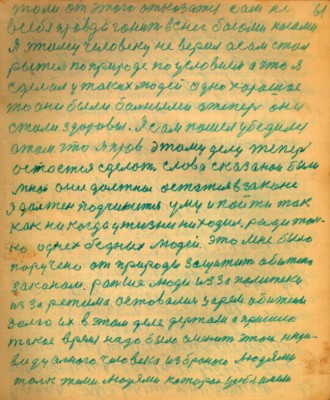 этот от этого откажет сам не
всебя правда гонит в снег босою ногами
Я этому человеку не верил а сам стал
растет по природе по условиям а то я
сделал у таких людей одно хорошее
то они были больными а теперь они
стали здоровы. Я сам пошел убедил
этом что я прав этому делу теперь
остается сделать слова сказаной были
мной они должны остатся в законе
я должен подчинится уму и пойти так
как никогда у жизни ни ходил. ради толь-
ко одних бедных людей. Это мне было
поручено от природы защитить обиженых
законам. рание люди из за политеки
из за режима оставалис у цеей обижены
долго их в этом деле держали а пришло
такое время надо было сменить этой инди-
видуалного человека изброного людями
толк теми людями которое